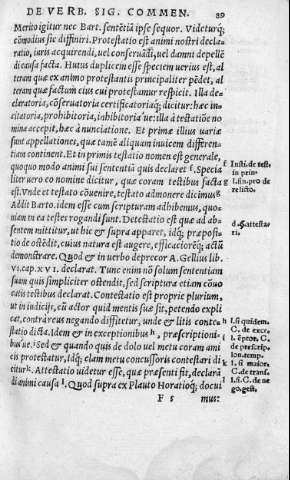 DE VERB. SIG. COMMEN. 89
Merito igitur nec Bart. sentētiā ipse sequor. Videturq;
cōmodius sic diffiniri. Protestatio est animi nostri decla
ratio, iuris acquirendi, uel conseruādi, uel damni depellē
di causa facta. Huius duplicem esse speciem uerius est, al
teram quæ ex animo protestantis principaliter pēdet, al
teram quæ factum eius cui protestamur respicit. Illa de-
claratoria, cōseruatoria certificatoriaq; dicitur: hæc in-
citatoria, prohibitoria, inhibitoria ue: illa à testatiōe no
mina accepit, hæc à nunciatione. Et primæ illius uariæ
sunt appellationes, quæ tamē aliquam inuicem differen-
tiam continent. Et in primis testatio nomen est generale,
quoquo modo animi sui sententiā quis declaret f. Specia
liter uero eo nomine dicitur, quæ coram testibus facta
est. Vnde et testato cōuenire, testato admonere dicimus g
Addit Barto. idem esse cum scripturam adhibemus, quo-
niam in ea testes rogandi sunt. Detestatio est quæ ad ab-
sentem mittitur, ut hic & supra apparet, idq; præposi-
tio de ostēdit, cuius natura est augere, efficaciorēq; actū
demonstrare. Quod & in uerbo deprecor A. Gellius lib.
VI. cap. XVI. declarat. Tunc enim nō solum sententiam
suam quis simpliciter ostendit, sed scriptura etiam cōuo
catis testibus declarat. Contestatio est proprie plurium,
ut in iudicijs, cū actor quid mentis suæ sit, petendo expli
cat, contrà reus negando diffitetur, unde & litis conte-
statio dicta. Idem & in exceptionibus h, præscriptioni-
bus'ue i. Sed & quando quis de dolo uel metu coram ami
cis protestatur, idq; clam metu concussoris contestari di
citur k. Attestatio uidetur esse, quæ præsenti fit, declarā
di animi causa l. Quod supra ex Plauto Horatioq; docui
F 5 mus:
f Insti. de test.
in prin.
l. fin. pro de
relicto.
l. si quidem.
C. de exce.
C. de trans.
l. si. C. de ne-
go. gest.